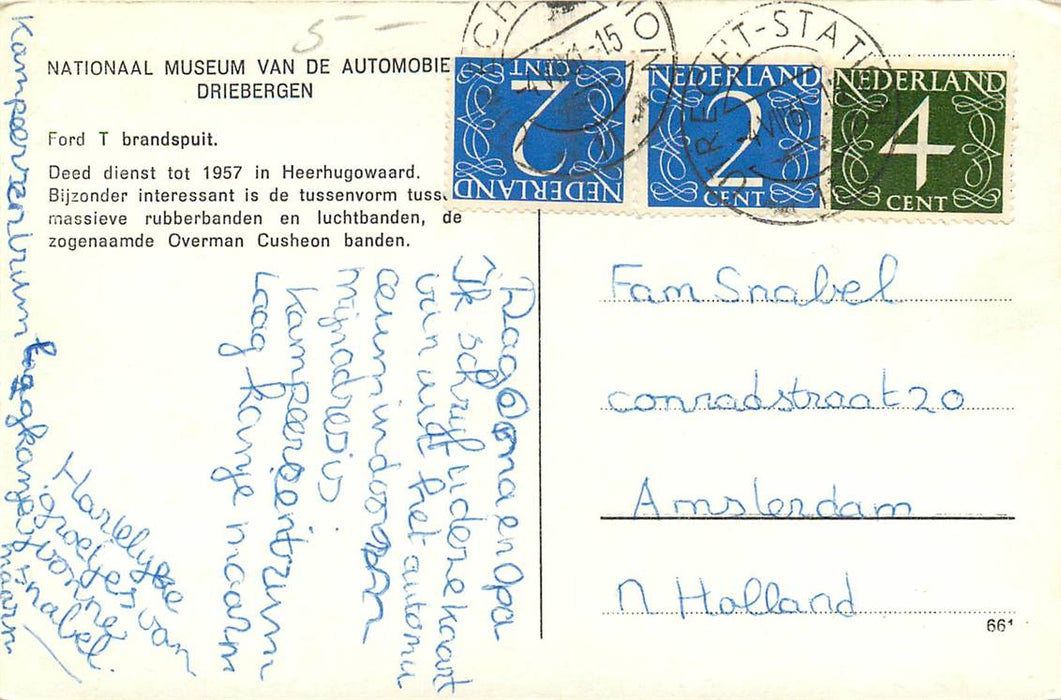 5-
NATIONAAL MUSEUM VAN DE AUTOMOBIE
DRIEBERGEN
Ford T brandspuit.
Deed dienst tot 1957 in Heerhugowaard.
Bijzonder interessant is de tussenvorm tuss
massieve rubberbanden en luchtbanden, de
zogenaamde Overman Cusheon banden.
NEDERLAND
2
CENT
NEDERLAND
2
CENT
NEDERLAND
4
CENT
UTRECHT-STATION
Dag Oma en Opa
Ik schrijf u dere kaart
van uit het automu
aeum in doorn
mijn adres is
kampeercentrum
Laag kanje maarn
Kampeercentrum Laagkanje
maarn
Hartelijke
groetjes van
yvonne
snabel.
Fam Snabel
conradstraat 20
Amsterdam
N Holland
661